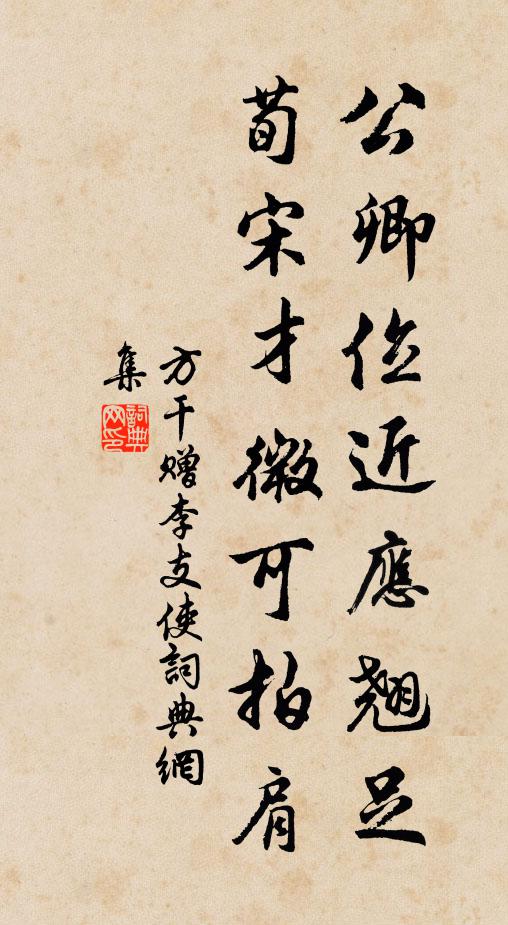 公卿位近應翹足
荀宋才微可拍肩
方干贈李支使詞典網
集
詞典网印